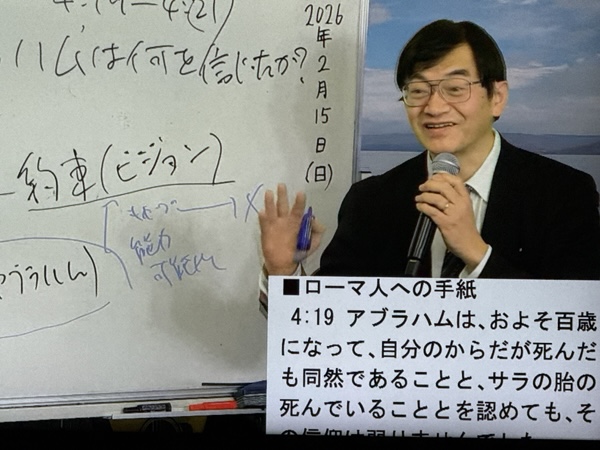 ハムは何を信じたか?
2026年2月15日(日)
約束(ビジョン)
能力
可能性
ブラハム)
■ローマ人への手紙
4:19 アブラハムは、およそ百歳
になって、自分のからだが死んだ
も同然であることと、サラの胎の
死んでいることとを認めても、そ
の信仰は弱りませんでした